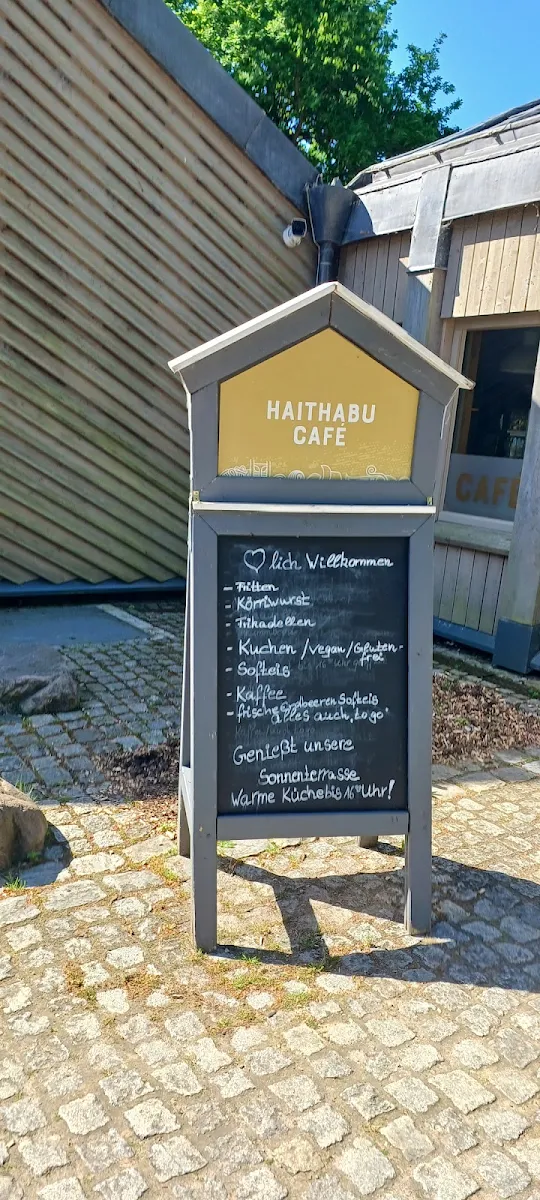 HAITHABU
CAFÉ
CAFÉ
♡lich Willkommen
- Fritten
- Körriwurst
- Frikadellen
- Kuchen /Vegan/Gluten-
frei
- Softeis
- Kaffee
- frische Erdbeeren Softeis
alles auch „to go"
Genießt unsere
Sonnenterrasse
Warme Küche bis 16⁰⁰ Uhr!